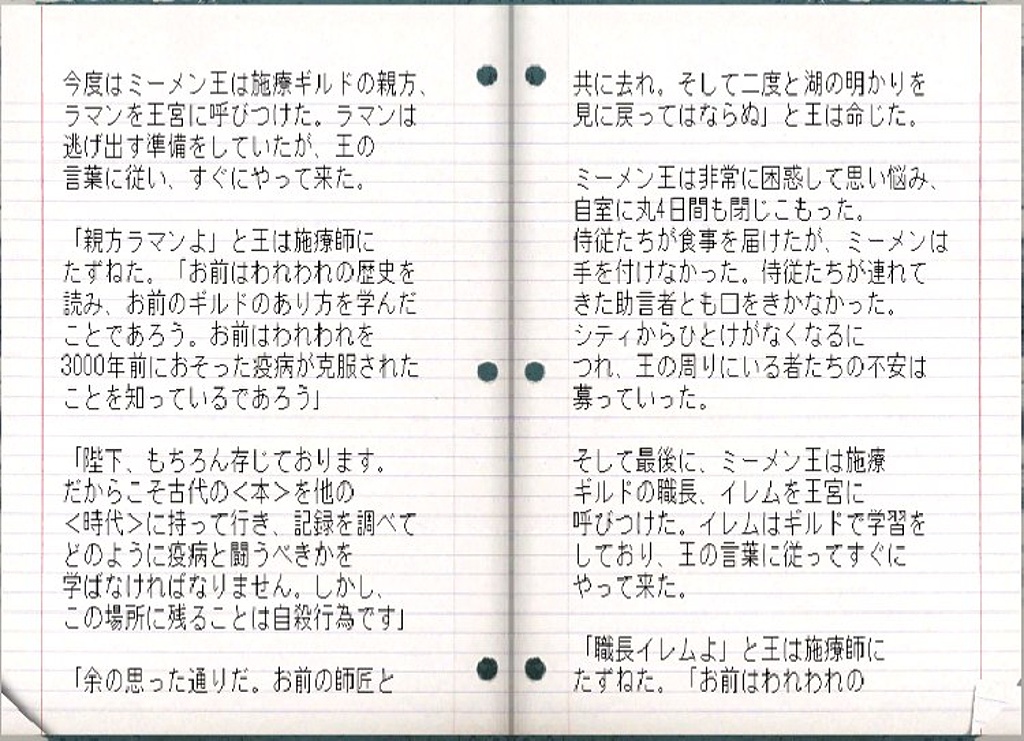 今度はミーメン王は施療ギルドの親方、
ラマンを王宮に呼びつけた。ラマンは
逃げ出す準備をしていたが、王の
言葉に従い、すぐにやって来た。
「親方ラマンよ」と王は施療師に
たずねた。「お前はわれわれの歴史を
読み、お前のギルドのあり方を学んだ
ことであろう。お前はわれわれを
3000年前におそった疫病が克服された
ことを知っているであろう」
「陛下、もちろん存じております。
だからこそ古代の<本>を他の
<時代>に持って行き、記録を調べて
どのように疫病と闘うべきかを
学ばなければなりません。しかし、
この場所に残ることは自殺行為です」
「余の思った通りだ。お前の師匠と
共に去れ。そして二度と湖の明かりを
見に戻ってはならぬ」と王は命じた。
ミーメン王は非常に困惑して思い悩み、
自室に丸4日間も閉じこもった。
侍従たちが食事を届けたが、ミーメンは
手を付けなかった。侍従たちが連れて
きた助言者とも口をきかなかった。
シティからひとけがなくなるに
つれ、王の周りにいる者たちの不安は
募っていった。
そして最後に、ミーメン王は施療
ギルドの職長、イレムを王宮に
呼びつけた。イレムはギルドで学習を
しており、王の言葉に従ってすぐに
やって来た。
「職長イレムよ」と王は施療師に
たずねた。「お前はわれわれの